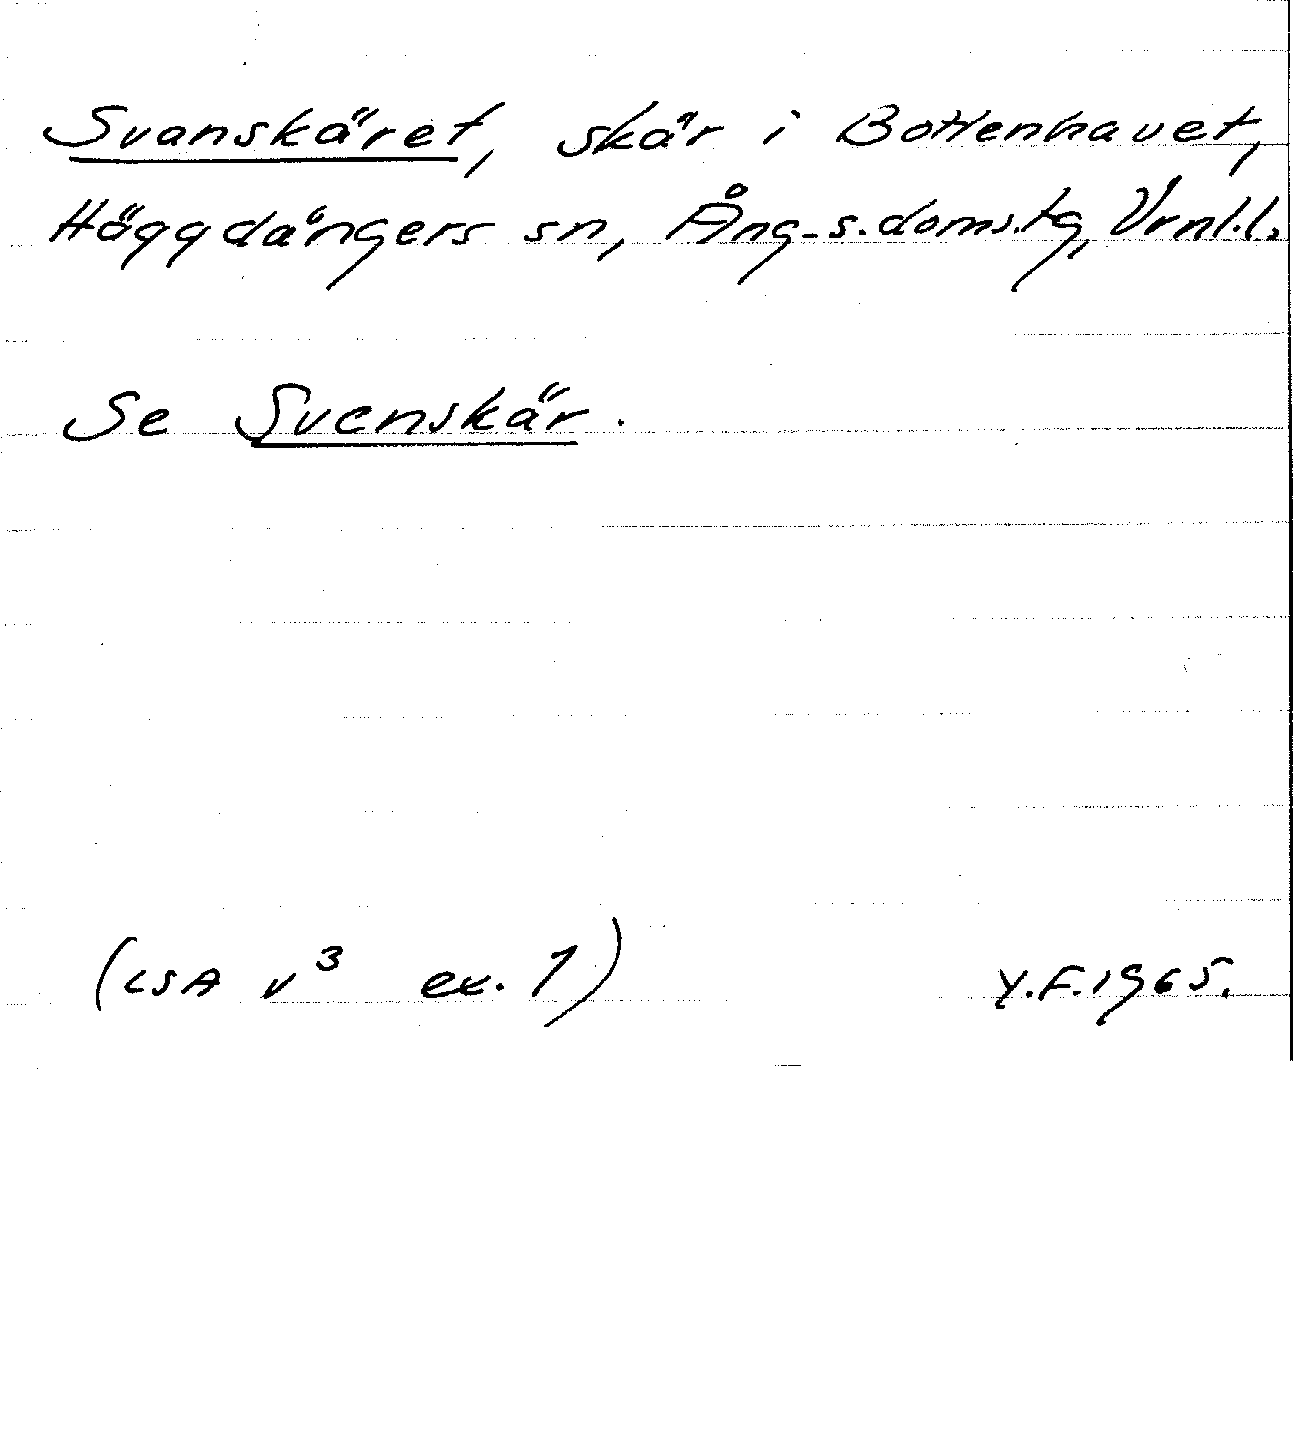 Svanskäret, skär i Bottenhavet,
Häggdångers sn, Ång. s. doms.tg, Vrnl.l.
Se Svenskär.
(LSA v³ ex. 1) Y.F. 1965.